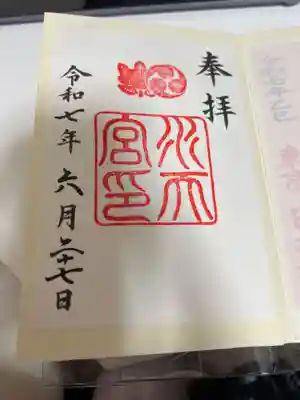 奉拝
水天
宮印
令和七年六月二十七日